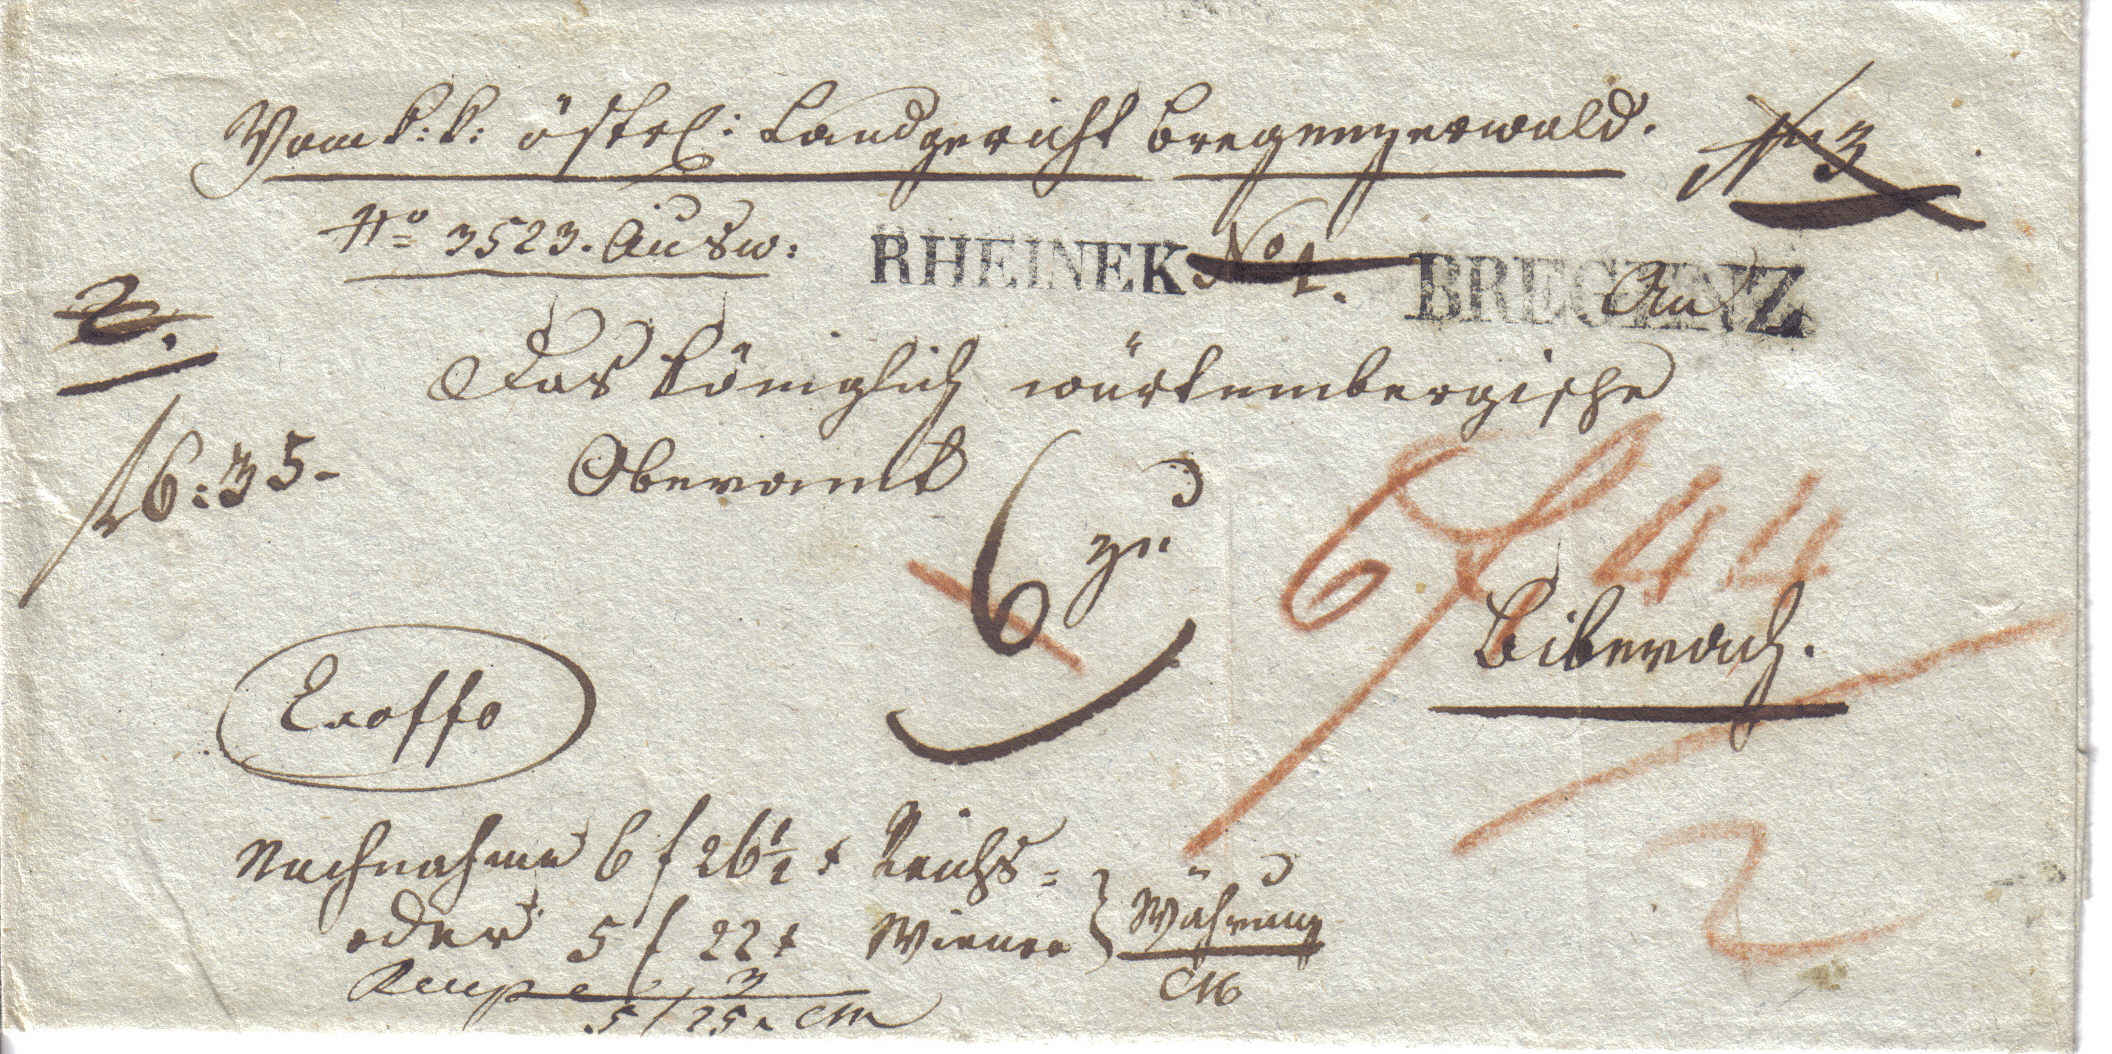 Vom k: k: östrl: Landgericht Bregenzerwald.
No 3
No 3523. Ausw:
RHEINEK No 1. BREGENZ
An
2.
Das königlich würtembergische
16:35-
Oberamt
6
zu
6 f 44
Biberach.
Exoffo
2
Nachnahme 6 f 26½ x Reichs=
oder 5 f 22 x Wiener } Währung
3
CM
5 f 25 x CM